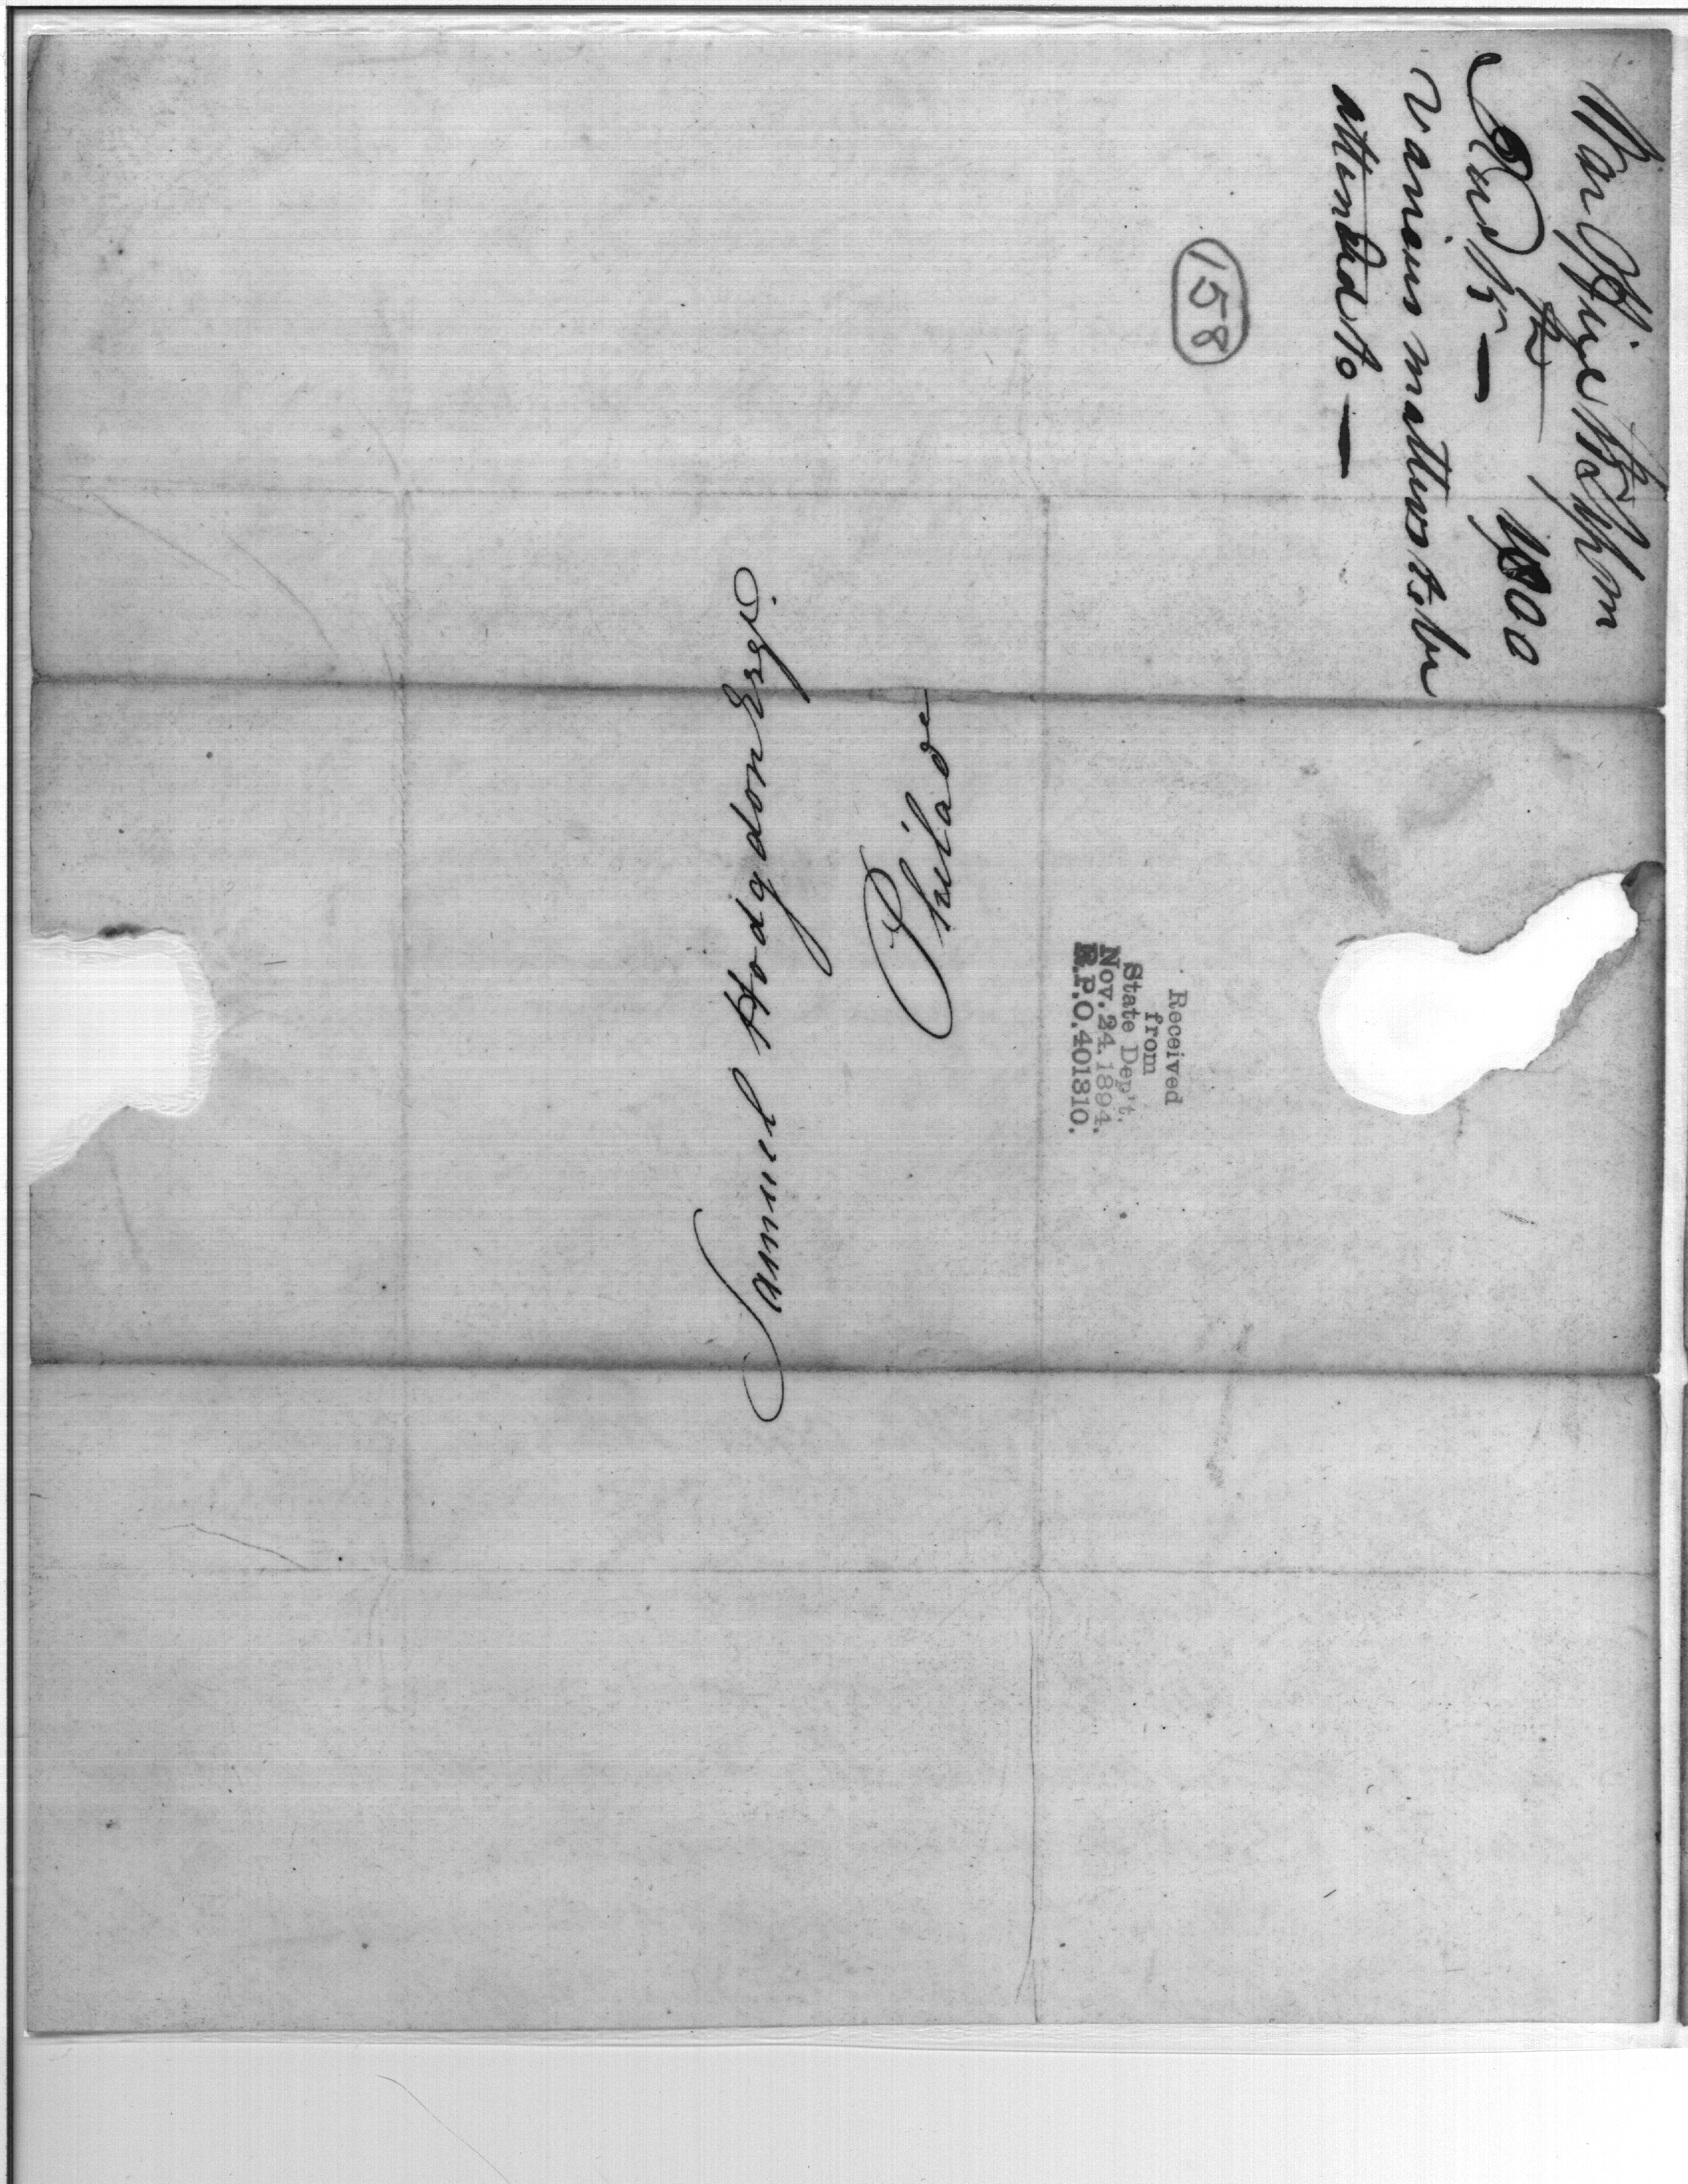 War Office
1800
Recd 15th —
various matters to be
attended to —
158
Received
from
State Dep't.
Nov. 24. 1894.
R.P.O. 401310.
Samuel Hodgdon Esqr.
Philada